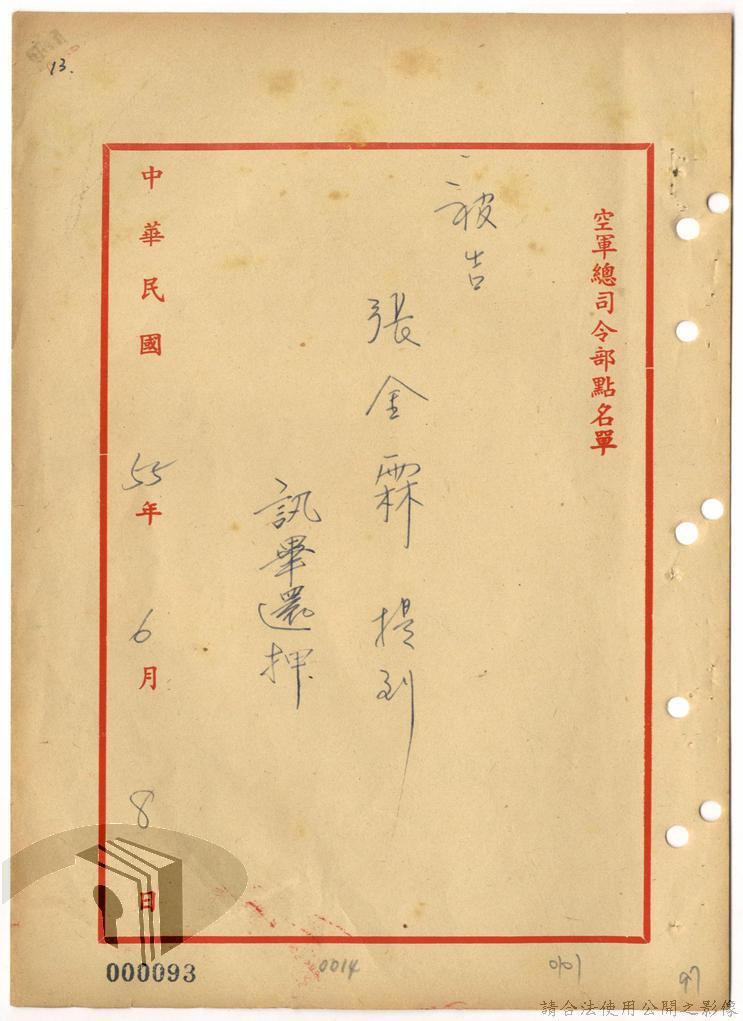 13.
空軍總司令部點名單
被告
張金霖 提到
訊畢還押
中華民國55年6月8日
000093
0014
0101
97
請合法使用公開之影像